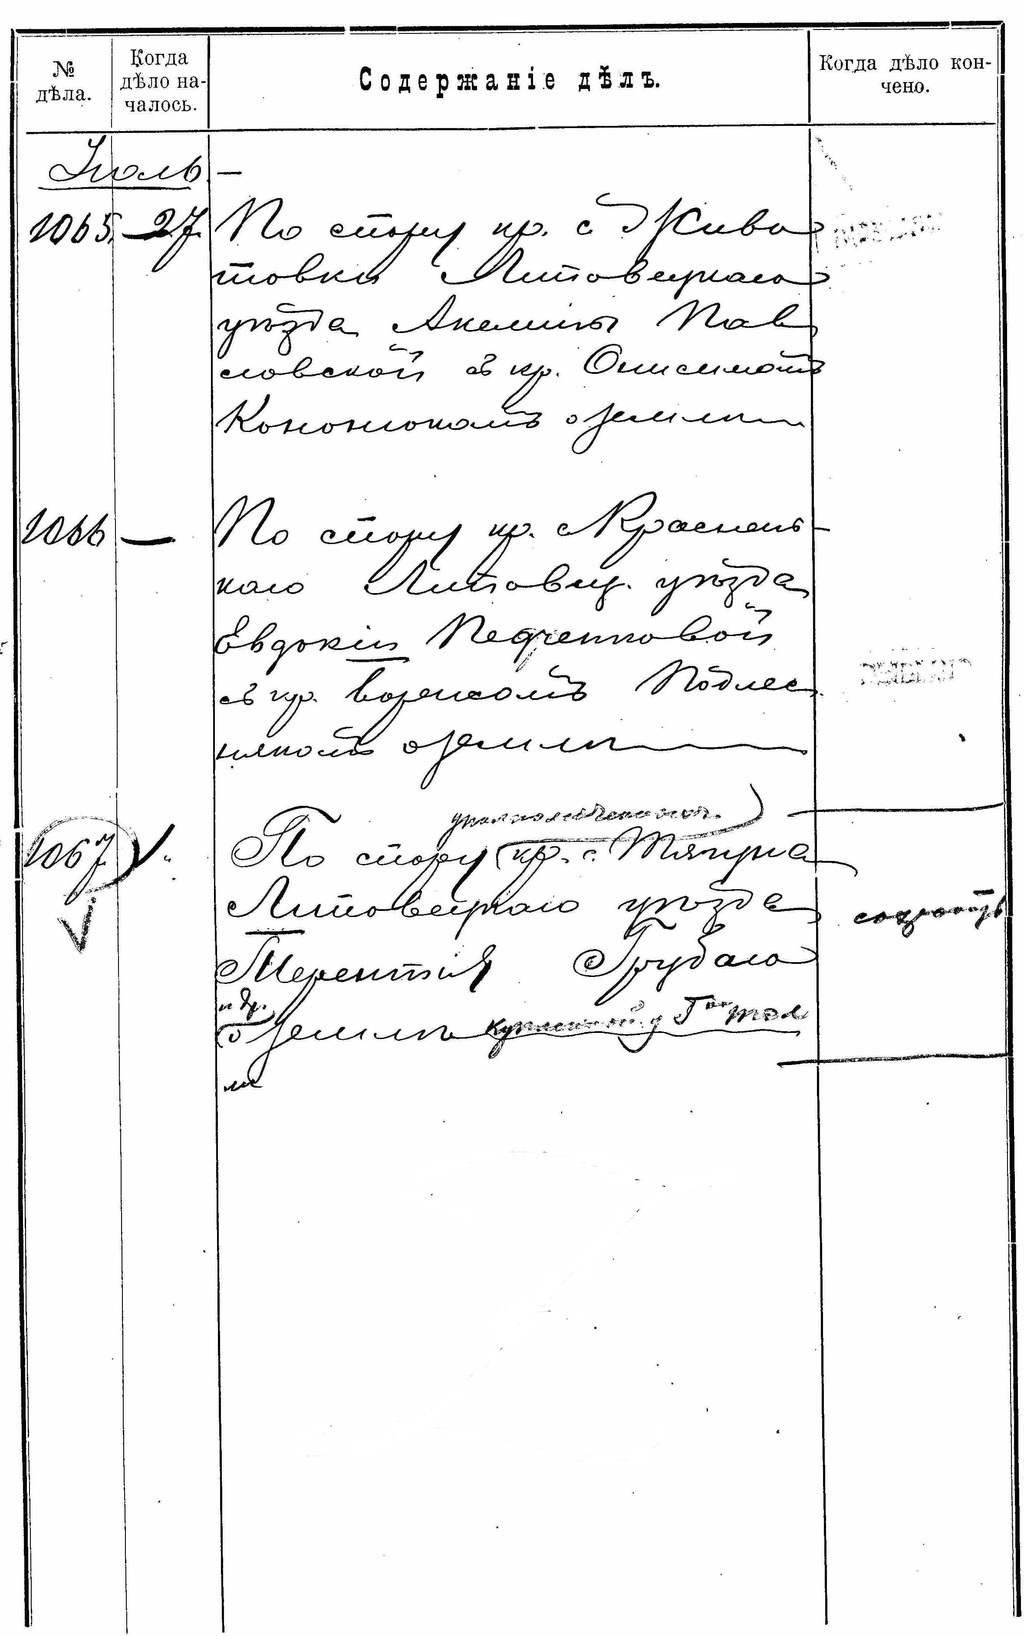 № дѣла.
Когда дѣло на-чалось.
Содержаніе дѣлъ.
Когда дѣло кон-чено.
Іюль –
1065. – 27. По спору кр. с. Живо
товки Липовецкаго
уѣзда Акелины Пав
ловской съ кр. Онисимомъ
Кононюкомъ о землѣ
1066 — По спору кр. с. Краснень-
каго Липовец. уѣзда
Евдокіи Педченковой
съ кр. Борисомъ Подлес
някомъ о землѣ
уполномоченнаго
1067 V. По спору (кр. с. Тягуна
Липовецкаго уѣзда
V
Терентія Грубаго
и др.
о землѣ купленной у
ли